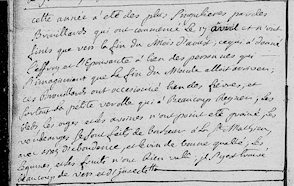 cette année a été des plus singulieres par des
Brouillards qui ont commencé le 17 avril et n'ont
finis que vers la fin du Mois d'aout, ce qui a donné
l'effroy et l'Epouvante a bien des personnes qui
s'imaginoient que la fin du Monde alloit arriver;
ces Brouillards ont occasionné bien des fievres, et
surtout la petite verolle qui a Beaucoup regnée; les
bleds les orges et les avoines n'ont point été les
vendanges se sont fait de bonheur a la St Mathieu,
assés d'abondance, et le vin de bonne qualité; les
legumes et les fruits n'ont bien valu
Beaucoup de vers et d'insectes